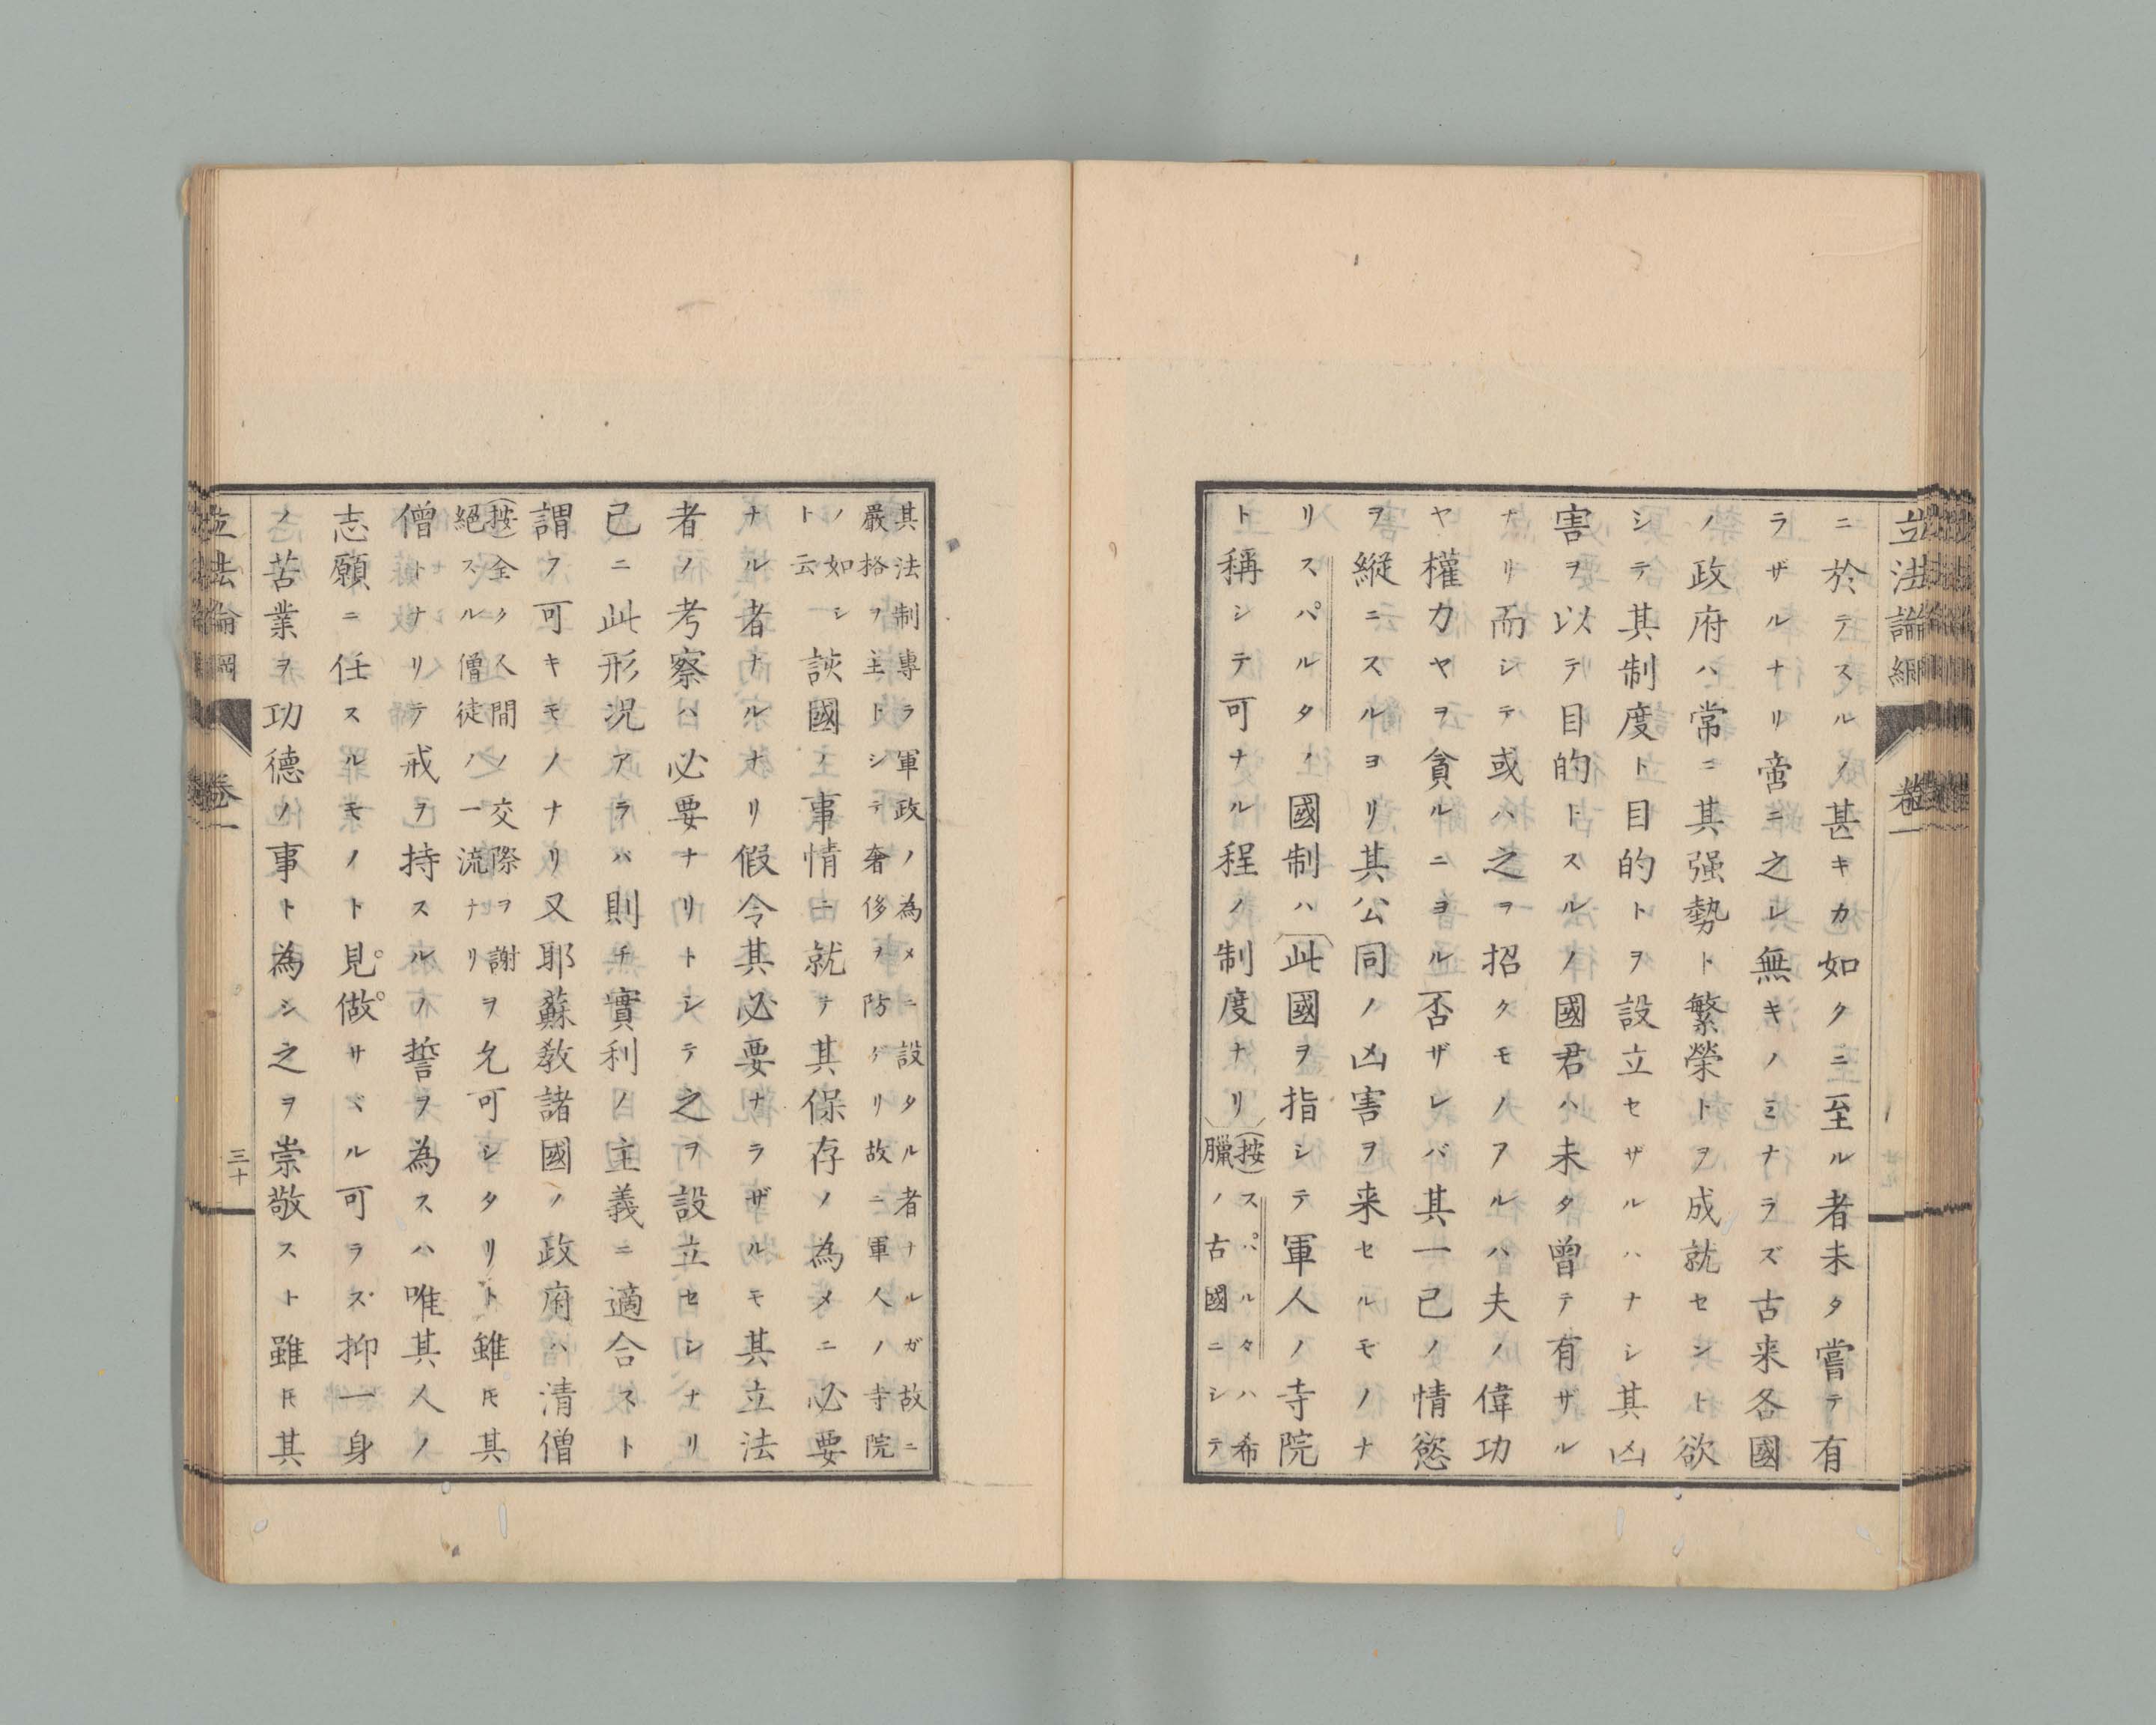 立法論綱
卷一
ニ於テスルノ甚キカ如クニ至ル者未タ嘗テ有
ラザルナリ啻ニ之レ無キノミナラズ古来各國
ノ政府ハ常ニ其强勢ト繁榮トヲ成就セント欲
シテ其制度ト目的トヲ設立セザルハナシ其凶
害ヲ以テ目的トスルノ國君ハ未タ曾テ有ザル
ナリ而シテ或ハ之ヲ招クモノアルハ夫ノ偉功
ヤ權力ヤヲ貪ルニヨル否ザレバ其一己ノ情慾
ヲ縱ニスルヨリ其公同ノ凶害ヲ来セルモノナ
リスパルタノ國制ハ(此國ヲ指シテ軍人ノ寺院
ト稱シテ可ナル程ノ制度ナリ)
(按)スパルタハ希
臘ノ古國ニシテ
其法制專ラ軍政ノ為メニ設タル者ナルガ故ニ
嚴格ヲ主トシテ奢侈ヲ防ゲリ故ニ軍人ノ寺院
ノ如シ
ト云
該國ノ事情ニ就テ其保存ノ為メニ必要
ナル者ナルナリ假令其必要ナラザルモ其立法
者ノ考察ハ必要ナリトシテ之ヲ設立セシナリ
已ニ此形況アラハ則チ實利ノ主義ニ適合スト
謂フ可キモノナリ又耶蘇教諸國ノ政府ハ清僧
(按)全ク人間ノ交際ヲ謝
絕スル僧徒ノ一流ナリ
ヲ允可シタリト雖𪜈其
僧トナリテ戒ヲ持スルノ誓ヲ為スハ唯其人ノ
志願ニ任スルモノト見做サヾル可ラズ抑一身
ノ苦業ヲ功德ノ事ト為シ之ヲ崇敬スト雖𪜈其
立法論綱
卷一
三十